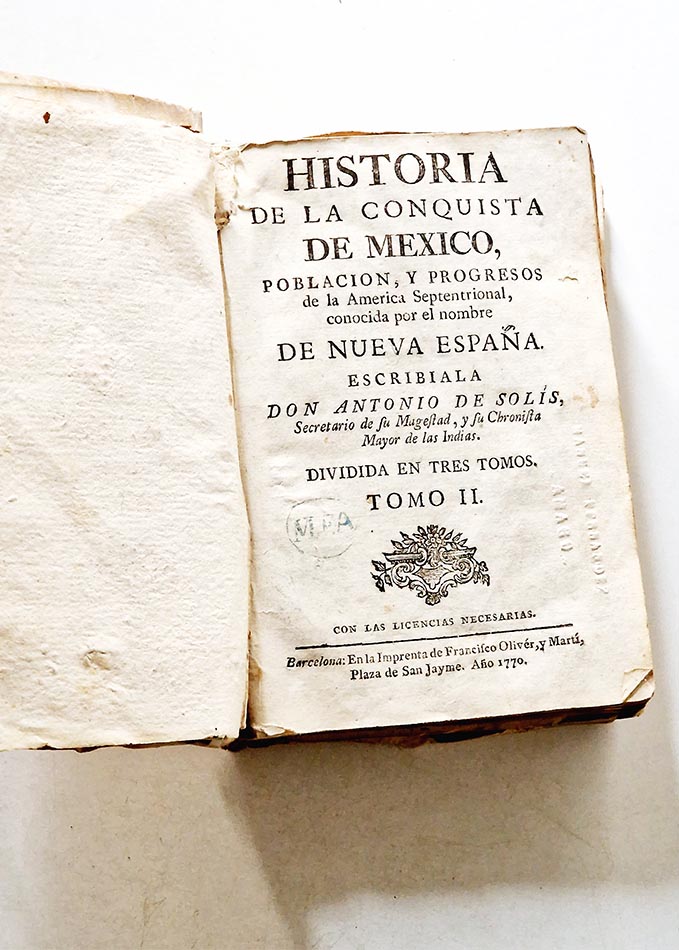 HISTORIA
DE LA CONQUISTA
DE MEXICO,
POBLACION, Y PROGRESOS
de la America Septentrional,
conocida por el nombre
DE NUEVA ESPAÑA.
ESCRIBIALA
DON ANTONIO DE SOLÍS,
Secretario de ſu Mageſtad, y ſu Chroniſta
Mayor de las Indias.
DIVIDIDA EN TRES TOMOS.
TOMO II.
CON LAS LICENCIAS NECESARIAS.
Barcelona: En la Imprenta de Franciſco Olivér, y Martí,
Plaza de San Jayme. Año 1770.